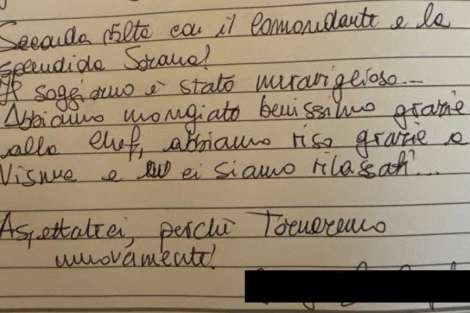 Seconda volta con il comandante e la
splendida Sorana!
Il soggiorno è stato meraviglioso...
Abbiamo mangiato benissimo grazie
allo Chef, abbiamo riso grazie a
e ci siamo rilassati...
Aspettateci, perchè Torneremo
nuovamente!